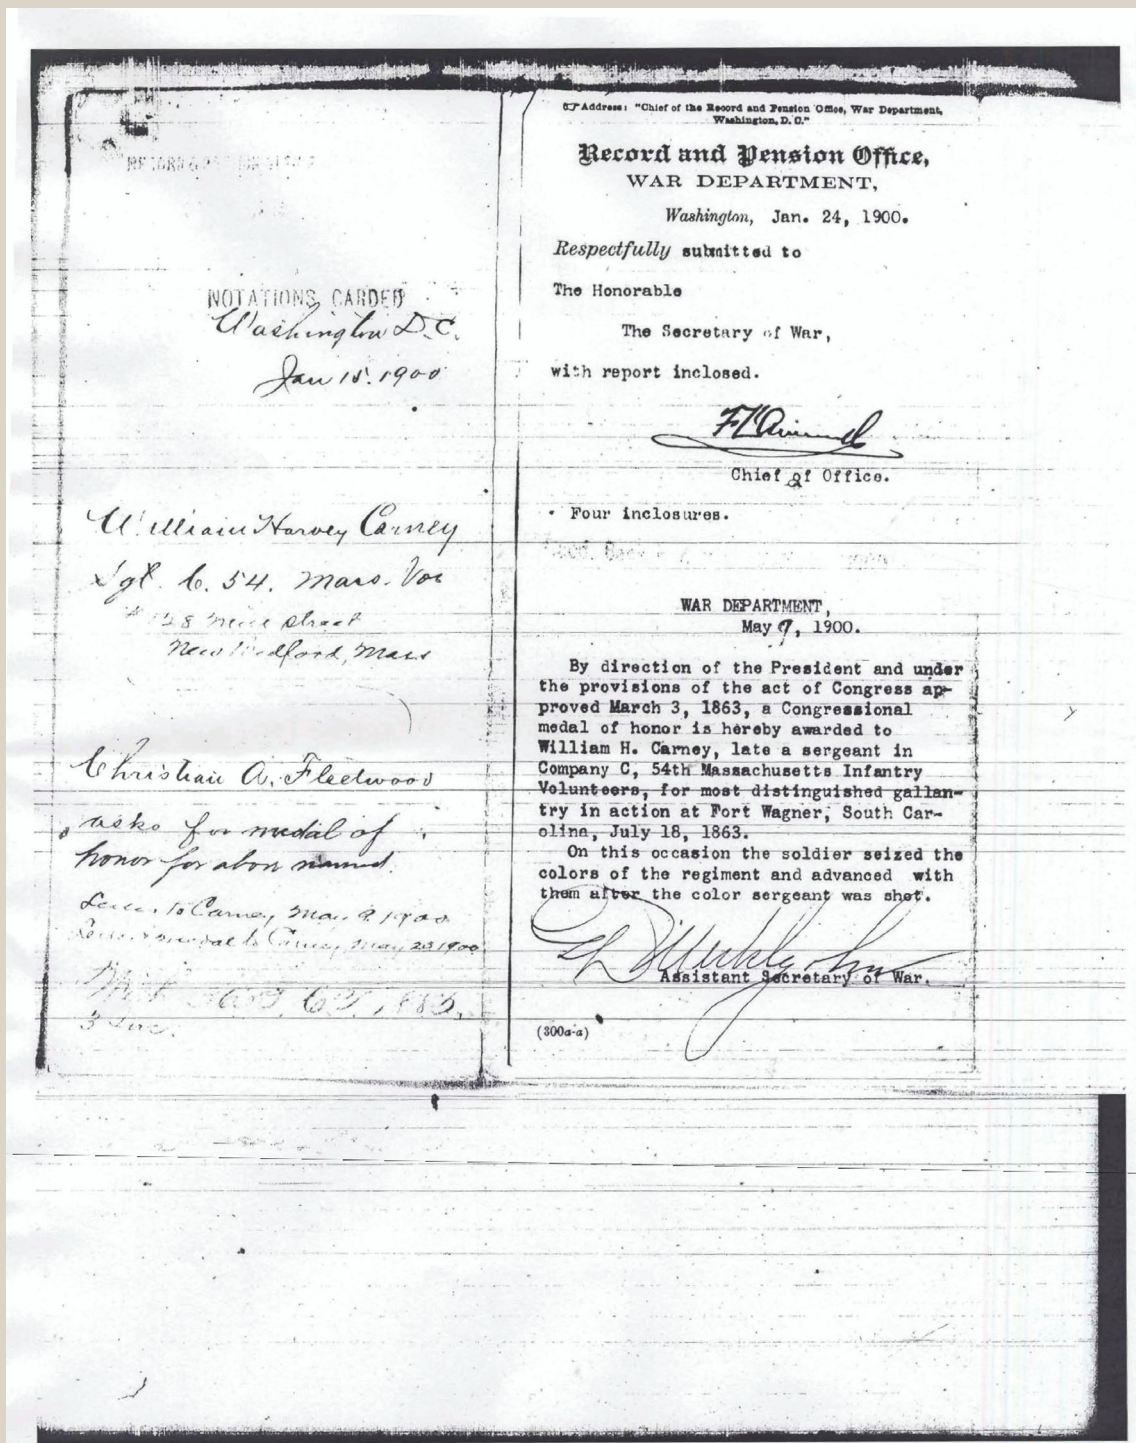 NOTATIONS CARDED
Washington D.C.
Jan 15. 1900
William Harvey Carney
Sgt. C. 54. Mass. Vol
128 Street
New Bedford, Mass
Christian A. Fleetwood
asks for medal of
honor for above named.
Letter to Carney, May 9. 1900
to Carney, May 23 1900
☞ Address: "Chief of the Record and Pension Office, War Department,
Washington, D. C."
Record and Pension Office,
WAR DEPARTMENT,
Washington, Jan. 24, 1900.
Respectfully submitted to
The Honorable
The Secretary of War,
with report inclosed.
Chief of Office.
Four inclosures.
WAR DEPARTMENT,
May 9, 1900.
By direction of the President and under
the provisions of the act of Congress ap-
proved March 3, 1863, a Congressional
medal of honor is hereby awarded to
William H. Carney, late a sergeant in
Company C, 54th Massachusetts Infantry
Volunteers, for most distinguished gallan-
try in action at Fort Wagner, South Car-
olina, July 18, 1863.
On this occasion the soldier seized the
colors of the regiment and advanced with
them after the color sergeant was shot.
Assistant Secretary of War.
(300a-a)